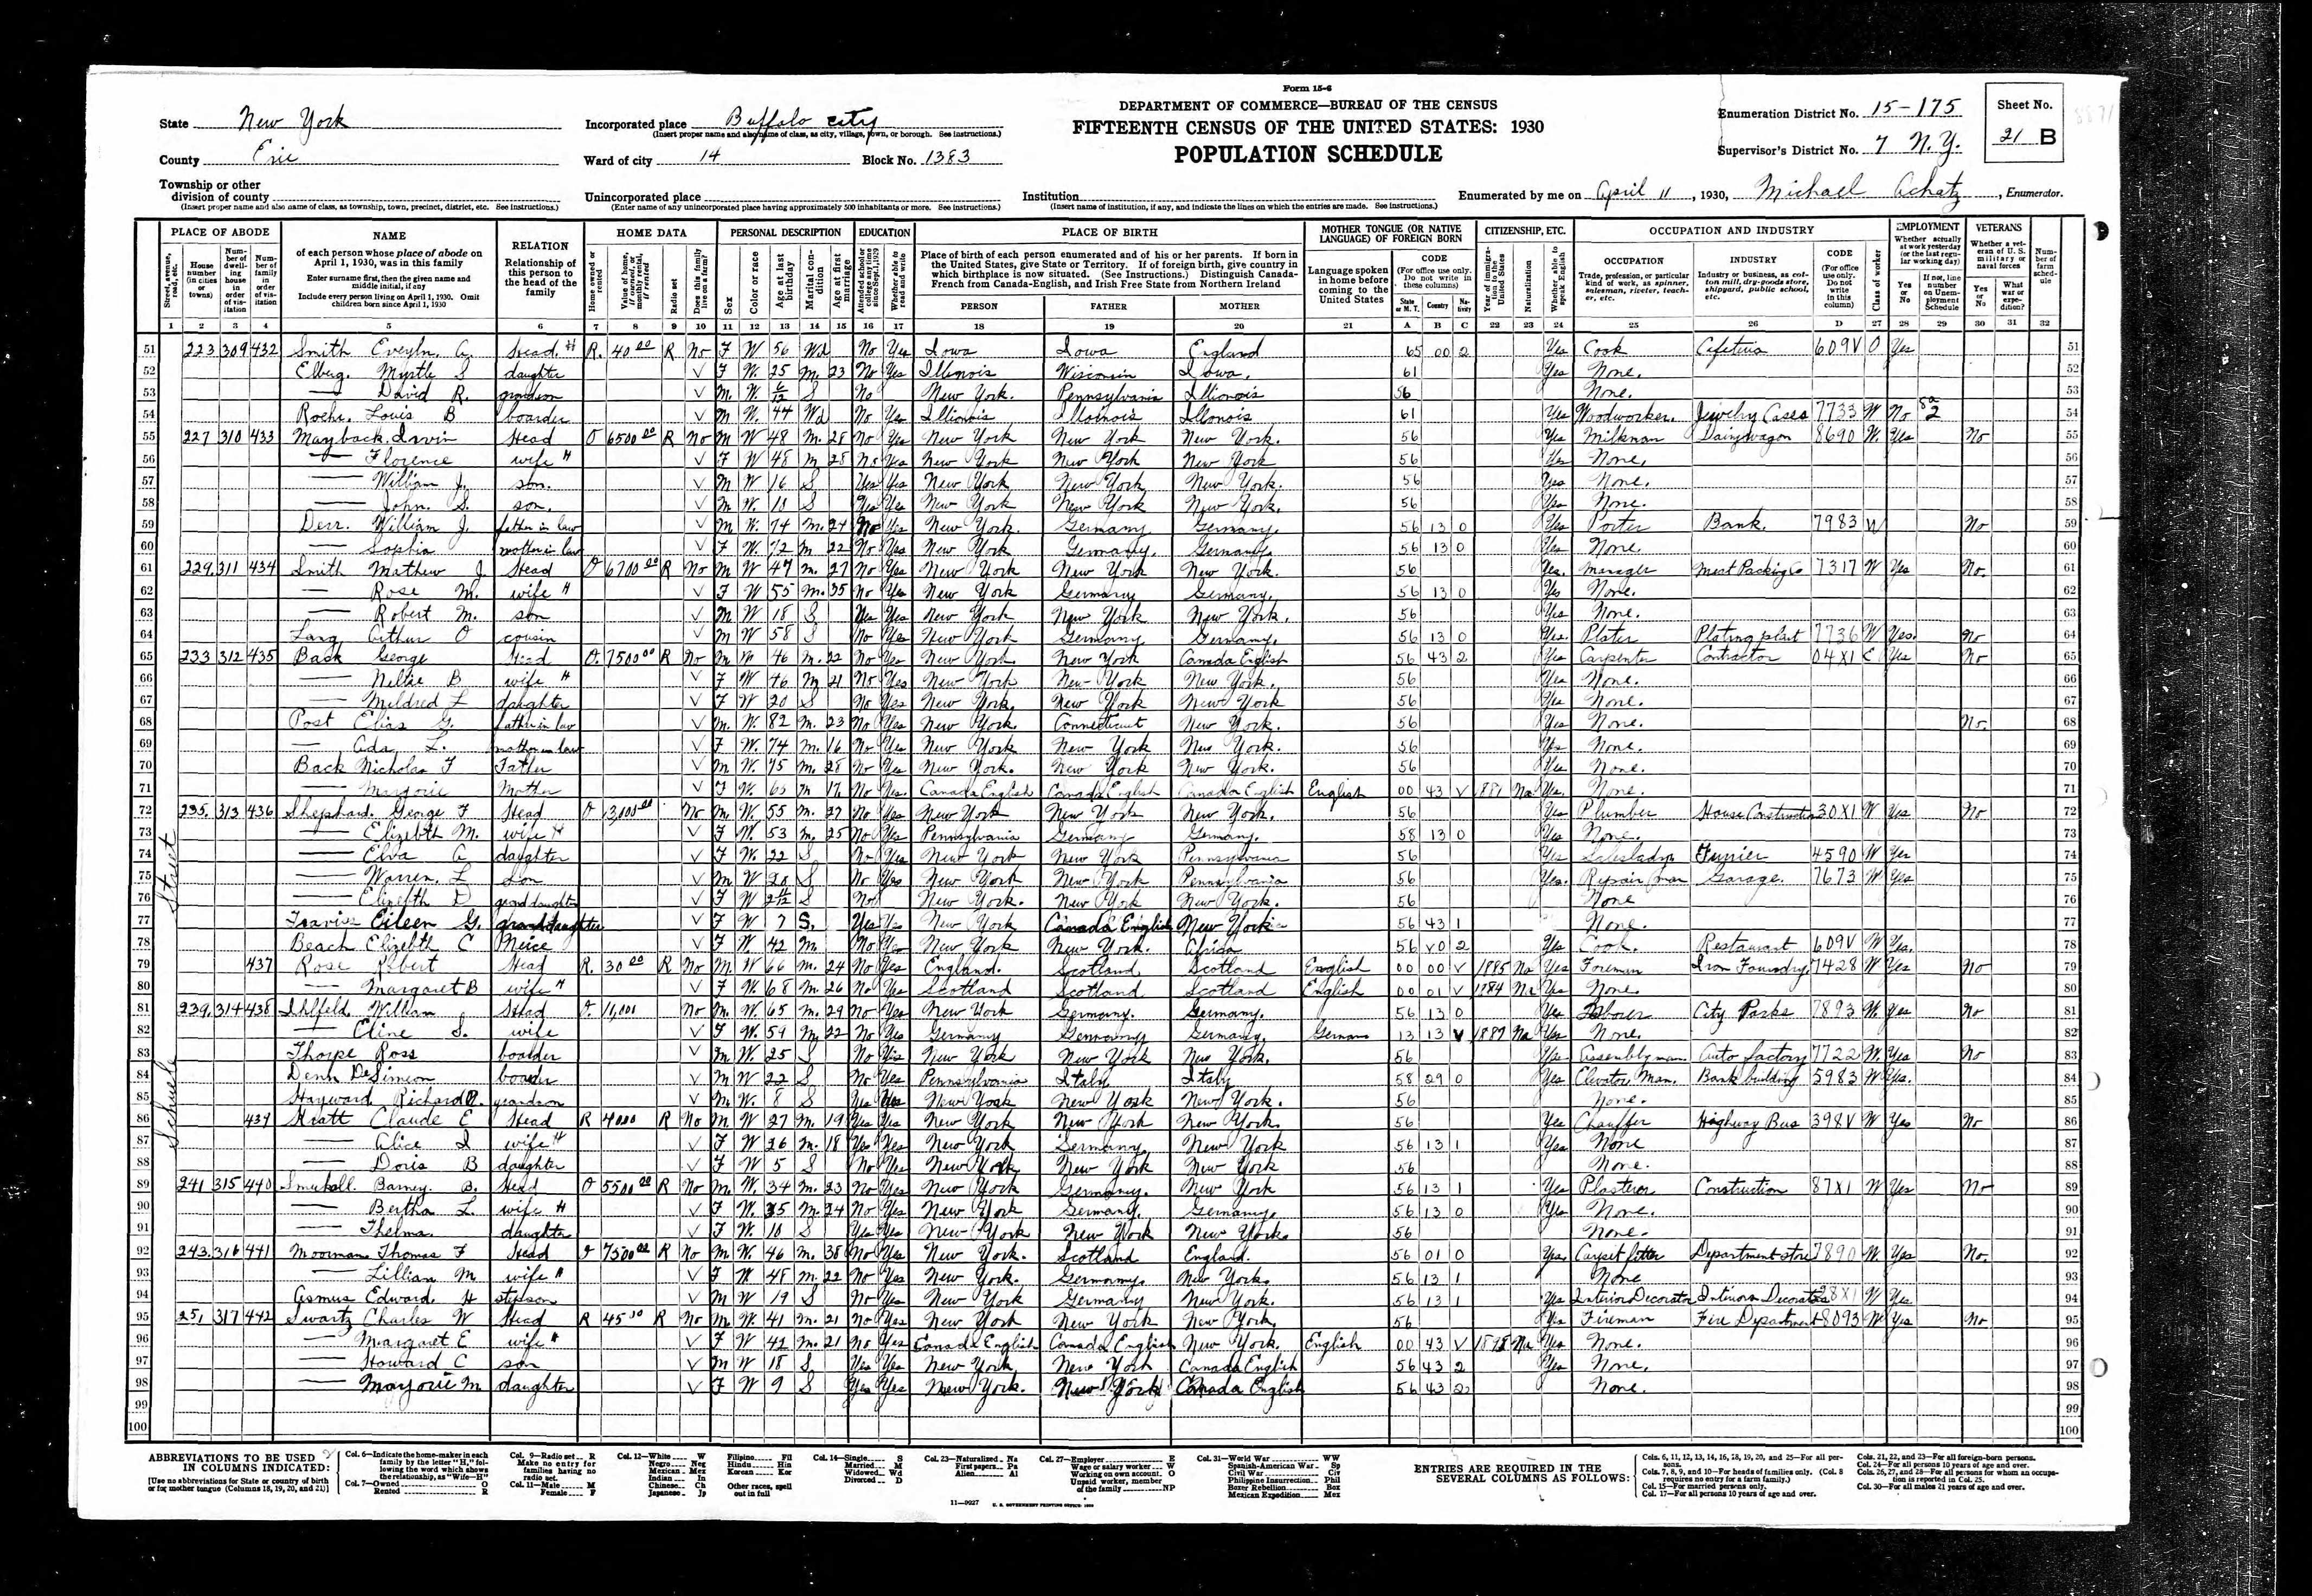 Form 15-6
DEPARTMENT OF COMMERCE—BUREAU OF THE CENSUS
FIFTEENTH CENSUS OF THE UNITED STATES: 1930
POPULATION SCHEDULE
State New York
County Erie
Township or other division of county
(Insert proper name and also name of class, as township, town, precinct, district, etc. See instructions.)
Incorporated place Buffalo city
(Insert proper name and also name of class, as city, village, town, or borough. See instructions.)
Ward of city 14 Block No. 1383
Unincorporated place
(Enter name of any unincorporated place having approximately 500 inhabitants or more. See instructions.)
Institution
(Insert name of institution, if any, and indicate the lines on which the entries are made. See instructions.)
Enumeration District No. 15-175
Supervisor's District No. 7 N.Y.
Sheet No. 21 B
Enumerated by me on April 11, 1930, Michael Achatz, Enumerator.
PLACE OF ABODE
NAME of each person whose place of abode on April 1, 1930, was in this family
Enter surname first, then the given name and middle initial, if any
Include every person living on April 1, 1930. Omit children born since April 1, 1930
RELATION Relationship of this person to the head of the family
HOME DATA
PERSONAL DESCRIPTION
EDUCATION
PLACE OF BIRTH
Place of birth of each person enumerated and of his or her parents. If born in the United States, give State or Territory. If of foreign birth, give country in which birthplace is now situated. (See Instructions.) Distinguish Canada-French from Canada-English, and Irish Free State from Northern Ireland
PERSON FATHER MOTHER
MOTHER TONGUE (OR NATIVE LANGUAGE) OF FOREIGN BORN
Language spoken in home before coming to the United States
CITIZENSHIP, ETC.
OCCUPATION AND INDUSTRY
EMPLOYMENT
VETERANS
1 2 3 4 5 6 7 8 9 10 11 12 13 14 15 16 17 18 19 20 21 A B C 22 23 24 25 26 D 27 28 29 30 31 32
51 223 309 432 Smith Eveyln A. Head H R. 40.00 R No F W 56 Wd No Yes Iowa Iowa England 65 00 2 Yes Cook Cafeteria 609V O Yes 51
52 Elberg. Myrtle S daughter V F W. 25 M. 23 No Yes Illinois Wisconsin Iowa. 61 Yes None. 52
53 — David R. grandson V M. W. 6/12 S No New York. Pennsylvania Illionois 56 None. 53
54 Roehr. Louis B boarder V M W. 44 Wd No Yes Illionois Illoinois Illonois 61 Yes Woodworker. Jewelry Cases 7733 W No 2 54
55 227 310 433 Mayback. Irwin Head O 6500.00 R No M W 48 M. 28 No Yes New York New York New York. 56 Yes Milkman Dairy wagon 8690 W. Yes No 55
56 — Florence wife H V F W 48 M 28 No Yes New York New York New York 56 Yes None. 56
57 — William J. son. V M W 16 S Yes Yes New York New York New York. 56 Yes None. 57
58 — John. S. son. V M W. 10 S Yes Yes New York New York New York. 56 Yes None. 58
59 Derr. William J. father in law V M W. 74 M. 24 No Yes New York. Germany Germany. 56 13 0 Yes Porter Bank. 7983 W No 59
60 — Sophia mother in law V F W. 72 M 22 No Yes New York Germany. Germany. 56 13 0 Yes None. 60
61 229. 311 434 Smith Mathew J. Head O 6700.00 R No M W 47 M. 27 No Yes New York New York New York. 56 Yes. Manager Meat Packing Co 7317 W Yes No. 61
62 — Rose M. wife H V F W 55 M. 35 No Yes New York Germany Germany. 56 13 0 Yes None. 62
63 — Robert M. son V M W 18 S Yes Yes New York New York New York. 56 Yes None. 63
64 Lang Arthur O cousin V M W 58 S No Yes New York Germany Germany. 56 13 0 Yes. Plater Plating plant 7736 W Yes. No 64
65 233 312 435 Back George Head O. 7500.00 R No M W 46 M. 22 No Yes New York New York Canada English 56 43 2 Yes Carpenter Contractor 04X1 E Yes No 65
66 — Nellie B wife H V F W 46 M 21 No Yes New York New York New York. 56 Yes None. 66
67 — Mildred L daughter V F W 20 S No Yes New York. New York New York 56 Yes None. 67
68 Post Elias G. father in law V M. W. 82 M. 23 No Yes New York. Connecticut New York. 56 Yes None. No. 68
69 — Ada L. mother in law V F W. 74 M. 16 No Yes New York New York New York. 56 Yes None. 69
70 Back Nicholas F Father V M W. 75 M. 28 No Yes New York. New York New York. 56 Yes None. 70
71 — Marjorie Mother V F W. 65 M 17 No Yes. Canada English Canada English Canada English English 00 43 V 1881 Na Yes. None. 71
72 235. 313 436 Shephard. George F Head O 3,000.00 No M. W. 55 M. 27 No Yes New York New York New York. 56 Yes Plumber House Construction 30X1 W Yes No 72
73 — Elizebth M. wife H V F W. 53 M. 25 No Yes Pennsylvania Germany Germany. 58 13 0 Yes None. 73
74 — Elva A daughter V F W. 22 S No Yes New York New York Pennsylvania 56 Yes Saleslady Furrier 4590 W Yes 74
75 — Warren. L son V M W 20 S No Yes New York New York Pennsylvania 56 Yes. Repair man Garage. 7673 W Yes 75
76 — Elizebth D grand daughter V F W 2 11/12 S No New York. New York New York. 56 None 76
77 Travis Eileen G. granddaughter V F W 7 S. Yes Yes New York Canada English New York 56 43 1 None. 77
78 Beach Elizebth C Neice V F W. 42 M No Yes New York New York. Africa 56 V0 2 Yes Cook. Restaurant 609V W Yes. 78
79 437 Rose Robert Head R. 30.00 R No M. W 66 M. 24 No Yes England. Scotland Scotland English 00 00 V 1885 Na Yes Foreman Iron Foundry 7428 W Yes No 79
80 — Margaret B wife H V F W. 68 M. 26 No Yes Scotland Scotland Scotland English 00 01 V 1884 Na Yes None. 80
81 239. 314 438 Ihlfeld. William Head O. 11,000 No M. W. 65 M. 29 No Yes New York Germany. Germany. 56 13 0 Yes Laborer City Parks 7893 W. Yes No 81
82 — Eline S. wife V F W. 59 M 22 No Yes Germany Germany Germany. German 13 13 V 1887 Na Yes None. 82
83 Thorpe Ross boarder V M. W. 25 S No Yes New York New York New York. 56 Yes Assembly man Auto factory 7722 W. Yes No 83
84 Denn DeSimeon boader V M W 22 S No Yes Pennsylvania Italy Italy 58 29 0 Yes Elevator Man. Bank building 5983 W Yes. 84
85 Hayward Richard R. grandson V M W. 8 S Yes Yes New York New York New York. 56 None. 85
86 439 Hratt Claude E Head R 40.00 R No M W 27 M. 19 Yes Yes New York New York New York. 56 Yes Chauffer Highway Bus 398V W Yes No 86
87 — Alice I wife H V F W 26 M. 18 Yes Yes New York Germany. New York 56 13 1 Yes None 87
88 — Doris B daughter V F W 5 S No Yes New York New York New York 56 None. 88
89 241 315 440 Barney. B. Head O 5500.00 R No M. W. 34 M. 23 No Yes New York Germany. New York 56 13 1 Yes Plasterer Construction 87X1 W Yes No 89
90 — Bertha L. wife H V F W. 35 M. 24 No Yes New York Germany. Germany. 56 13 0 Yes None. 90
91 — Thelma. daughter V F W. 10 S Yes Yes New York New York New York 56 None. 91
92 243. 316 441 Moorman Thomas F Head O 7500.00 R No M W. 46 M. 38 No Yes New York. Scotland England. 56 01 0 Yes. Carpet fitter Department store 7890 W. Yes No. 92
93 — Lillian M wife H V F W 48 M. 22 No Yes New York. Germany. New York. 56 13 1 None 93
94 Asmus Edward. H stepson V M W 19 S No Yes New York Germany New York. 56 13 1 Yes Interior Decorator Interior Decorator 28X1 W Yes. 94
95 251 317 442 Swartz Charles W Head R 45.00 R No M. W. 41 M. 21 No Yes New York New York New York. 56 Yes Fireman Fire Department 8093 W Yes No 95
96 — Margaret E wife H V F W 42 M. 21 No Yes Canada English Canada English New York. English 00 43 V 1898 Na Yes None. 96
97 — Howard C son V M W 18 S Yes Yes New York New York Canada English 56 43 2 Yes None. 97
98 — Marjorie M daughter V F W 9 S Yes Yes New York. New York Canada English 56 43 2 None. 98
99 99
100 100
Schuele Street
ABBREVIATIONS TO BE USED IN COLUMNS INDICATED:
[Use no abbreviations for State or country of birth or for mother tongue (Columns 18, 19, 20, and 21)]
Col. 6—Indicate the home-maker in each family by the letter "H," following the word which shows the relationship, as "Wife—H"
Col. 7—Owned O Rented R
Col. 9—Radio set R Make no entry for families having no radio set.
Col. 11—Male M Female F
Col. 12—White W Negro Neg Mexican Mex Indian In Chinese Ch Japanese Jp
Filipino Fil Hindu Hin Korean Kor Other races, spell out in full
Col. 14—Single S Married M Widowed Wd Divorced D
Col. 23—Naturalized Na First papers Pa Alien Al
Col. 27—Employer E Wage or salary worker W Working on own account O Unpaid worker, member of the family NP
Col. 31—World War WW Spanish-American War Sp Civil War Civ Philippine Insurrection Phil Boxer Rebellion Box Mexican Expedition Mex
ENTRIES ARE REQUIRED IN THE SEVERAL COLUMNS AS FOLLOWS:
Cols. 6, 11, 12, 13, 14, 16, 18, 19, 20, and 25—For all persons.
Cols. 7, 8, 9, and 10—For heads of families only. (Col. 8 requires no entry for a farm family.)
Col. 15—For married persons only.
Col. 17—For all persons 10 years of age and over.
Cols. 21, 22, and 23—For all foreign-born persons.
Col. 24—For all persons 10 years of age and over.
Cols. 26, 27, and 28—For all persons for whom an occupation is reported in Col. 25.
Col. 30—For all males 21 years of age and over.
11—9927 U. S. GOVERNMENT PRINTING OFFICE: 1930